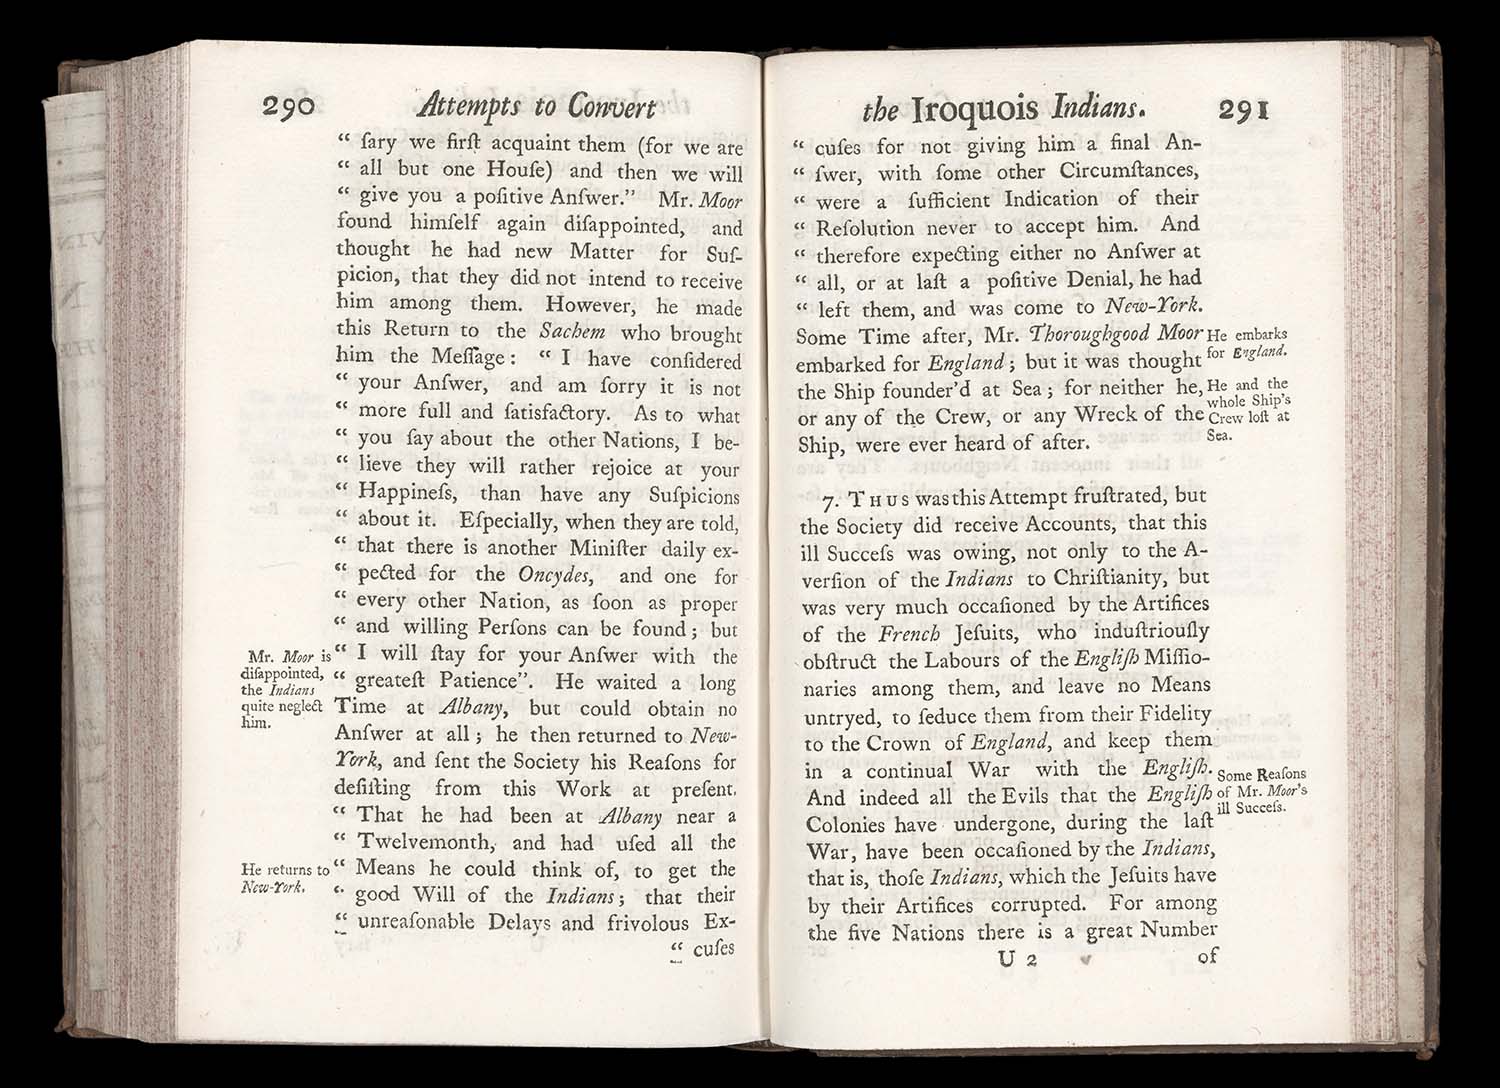 290 Attempts to Convert
“ ſary we firſt acquaint them (for we are
“ all but one Houſe) and then we will
“ give you a poſitive Anſwer.” Mr. Moor
found himſelf again diſappointed, and
thought he had new Matter for Suſ-
picion, that they did not intend to receive
him among them. However, he made
this Return to the Sachem who brought
him the Meſſage: “ I have conſidered
“ your Anſwer, and am ſorry it is not
“ more full and ſatisfactory. As to what
“ you ſay about the other Nations, I be-
“ lieve they will rather rejoice at your
“ Happineſs, than have any Suſpicions
“ about it. Eſpecially, when they are told,
“ that there is another Miniſter daily ex-
“ pected for the Oncydes, and one for
“ every other Nation, as ſoon as proper
“ and willing Perſons can be found; but
“ I will ſtay for your Anſwer with the
“ greateſt Patience”. He waited a long
Time at Albany, but could obtain no
Anſwer at all; he then returned to New-
York, and ſent the Society his Reaſons for
deſiſting from this Work at preſent.
“ That he had been at Albany near a
“ Twelvemonth, and had uſed all the
“ Means he could think of, to get the
“ good Will of the Indians; that their
“ unreaſonable Delays and frivolous Ex-
“ cuſes
Mr. Moor is
diſappointed,
the Indians
quite neglect
him.
He returns to
New-York.
the Iroquois Indians. 291
“ cuſes for not giving him a final An-
“ ſwer, with ſome other Circumſtances,
“ were a ſufficient Indication of their
“ Reſolution never to accept him. And
“ therefore expecting either no Anſwer at
“ all, or at laſt a poſitive Denial, he had
“ left them, and was come to New-York.
Some Time after, Mr. Thoroughgood Moor
embarked for England; but it was thought
the Ship founder’d at Sea; for neither he,
or any of the Crew, or any Wreck of the
Ship, were ever heard of after.
7. THUS was this Attempt fruſtrated, but
the Society did receive Accounts, that this
ill Succeſs was owing, not only to the A-
verſion of the Indians to Chriſtianity, but
was very much occaſioned by the Artifices
of the French Jeſuits, who induſtriouſly
obſtruct the Labours of the Engliſh Miſſio-
naries among them, and leave no Means
untryed, to ſeduce them from their Fidelity
to the Crown of England, and keep them
in a continual War with the Engliſh.
And indeed all the Evils that the Engliſh
Colonies have undergone, during the laſt
War, have been occaſioned by the Indians,
that is, thoſe Indians, which the Jeſuits have
by their Artifices corrupted. For among
the five Nations there is a great Number
U 2 of
He embarks
for England.
He and the
whole Ship’s
Crew loſt at
Sea.
Some Reaſons
of Mr. Moor’s
ill Succeſs.